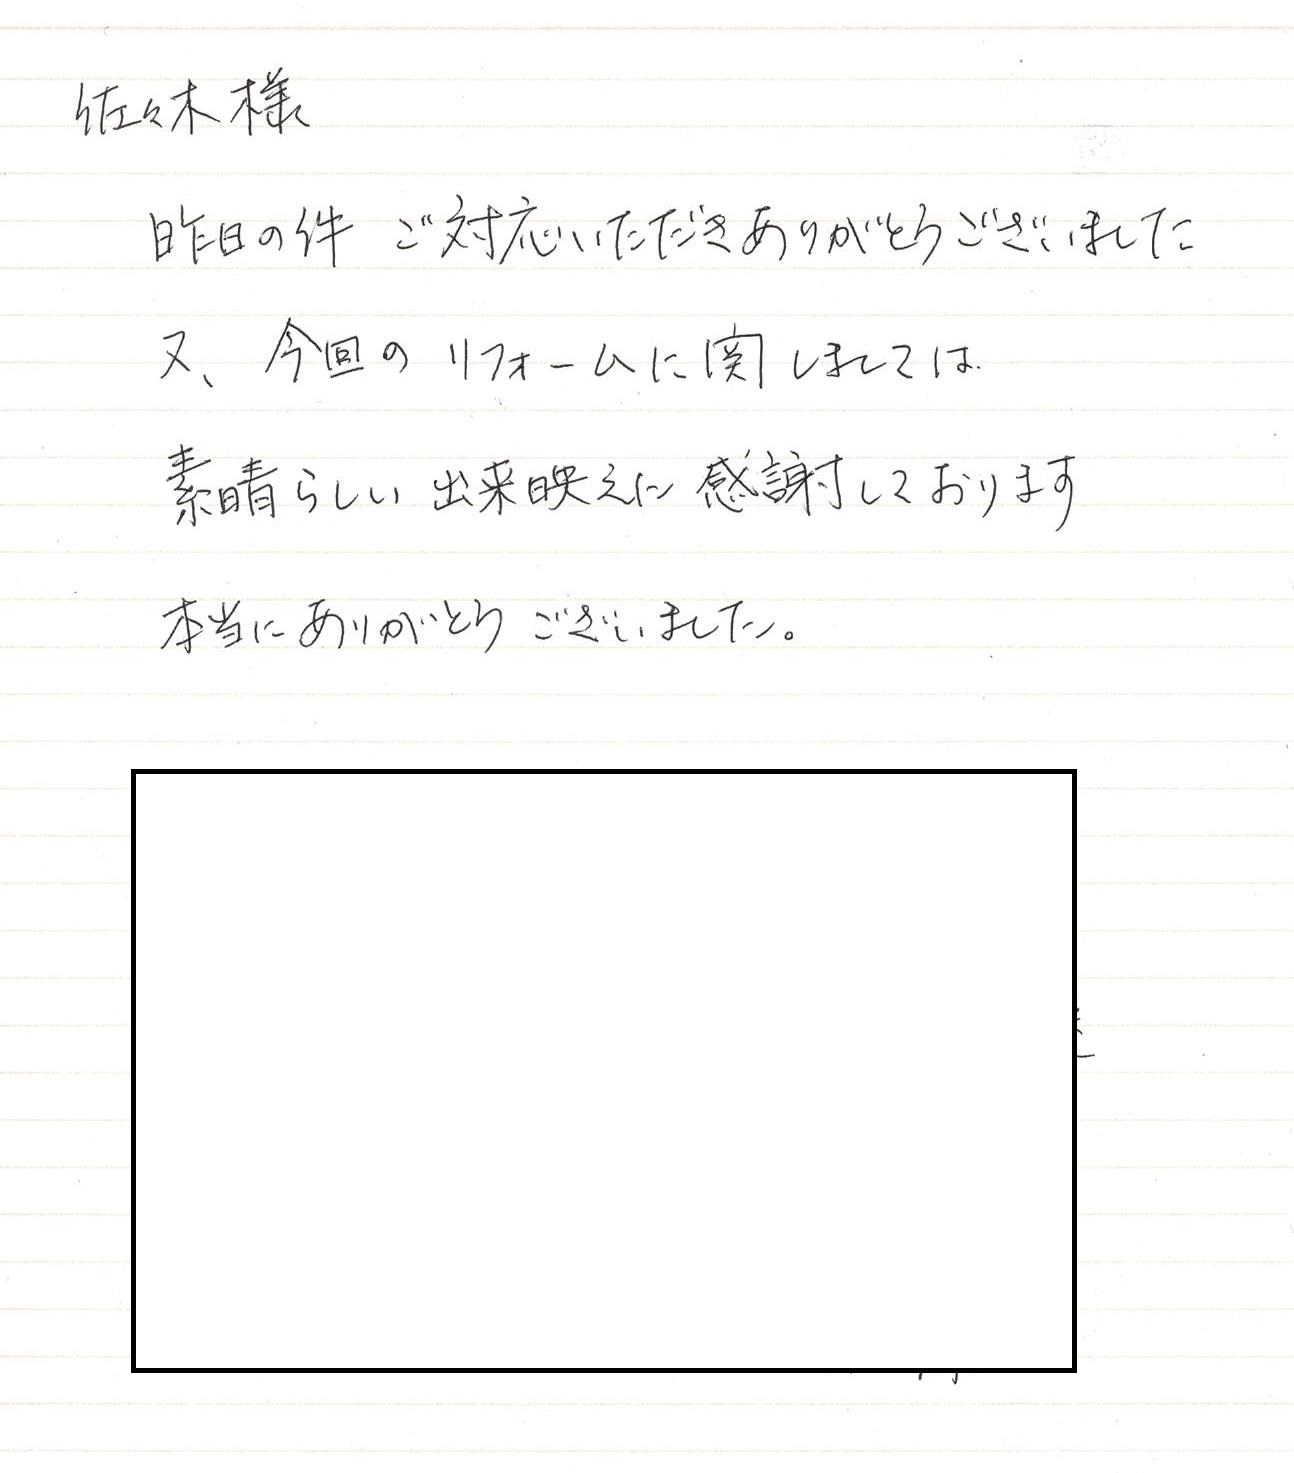 佐々木様
昨日の件 ご対応いただきありがとうございました
又、今回のリフォームに関しましては
素晴らしい出来映えに感謝しております
本当にありがとうございました。